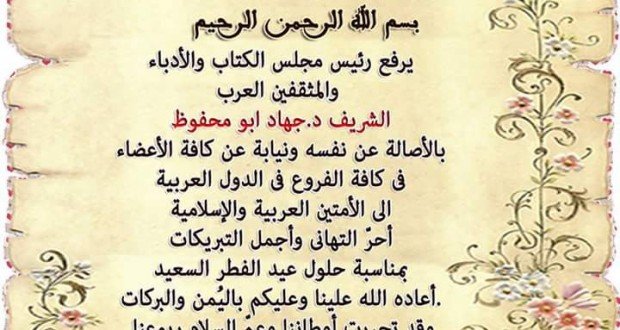 بسم الله الرحمن الرحيم
يرفع رئيس مجلس الكتاب والأدباء
والمثقفين العرب
الشريف د.جهاد ابو محفوظ
بالأصالة عن نفسه ونيابة عن كافة الأعضاء
فى كافة الفروع فى الدول العربية
الى الأمتين العربية والإسلامية
أحرّ التهانى وأجمل التبريكات
بمناسبة حلول عيد الفطر السعيد
.أعاده الله علينا وعليكم باليُمن والبركات
وقد تحررت أوطاننا وعمّ السلام ربوعنا